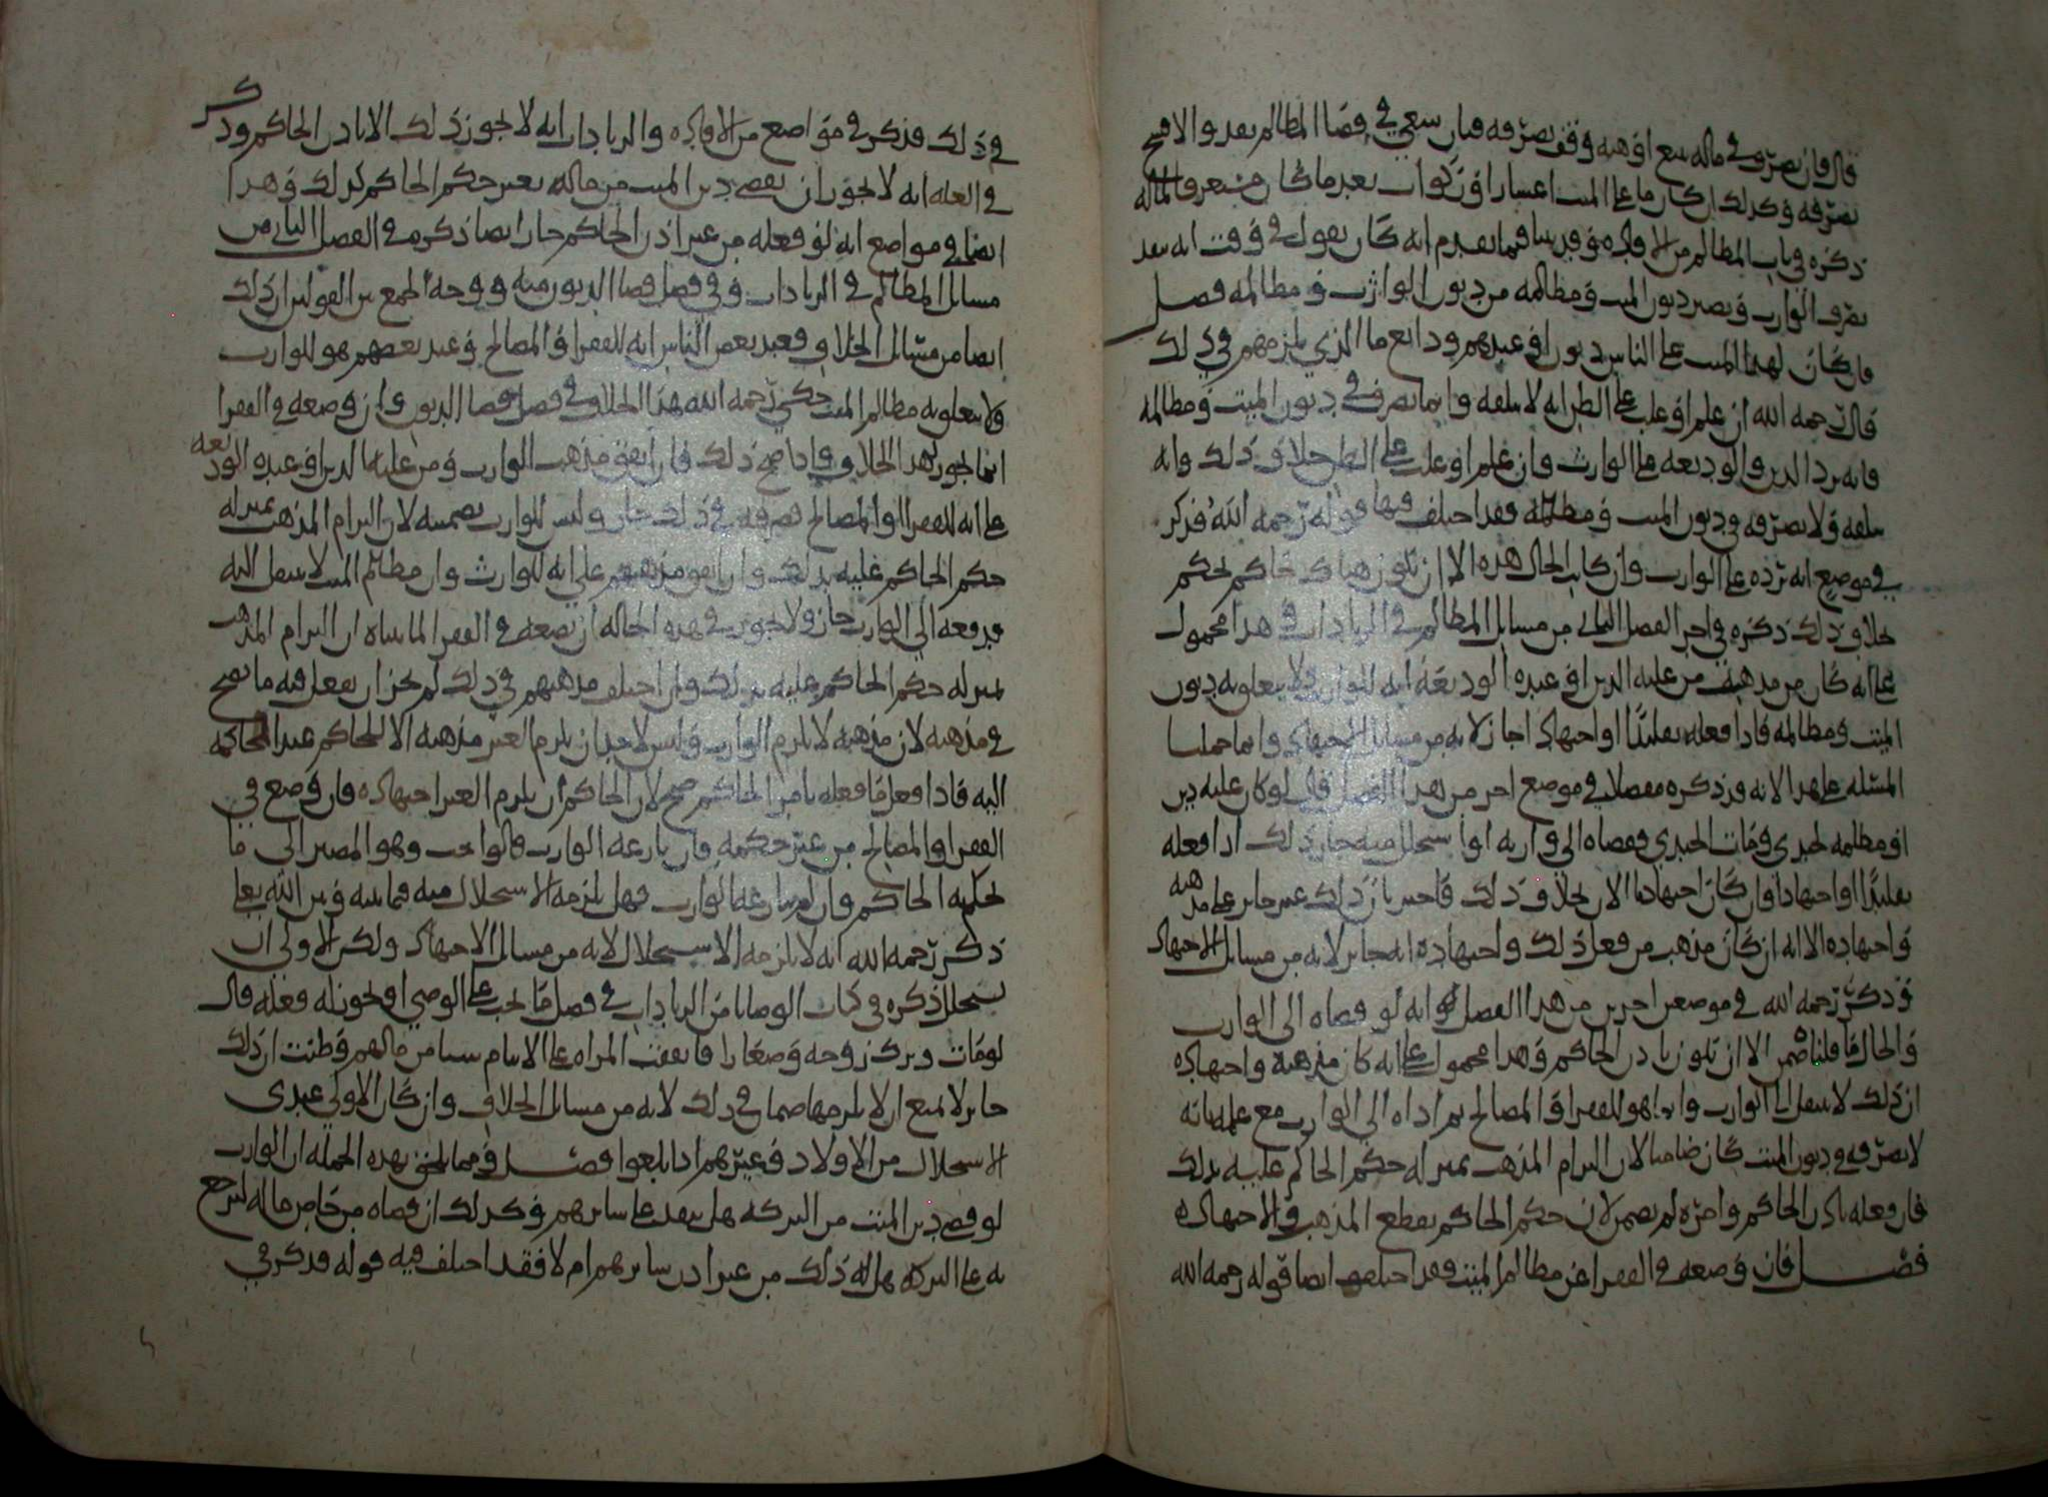 قال فان تصرف في ماله ببيع او هبه وقف تصرفه فان سعى في قضا المظالم نفد والا فسخ
تصرفه وكذلك ان كان ما على الميت اعشارا او زكوات بعد ما كان
ذكره في باب المظالم من الافاده وقد بينا فيما تقدم انه كان يقول في وقت انه بعد
الوارث وتصير ديون الميت ومظالمه من ديون الوارث ومظالمه فصل
فان كان لهذا الميت على الناس ديون او عندهم ودائع ما الذي يلزمهم في ذلك
قال رحمه الله ان علم او غلب على الظن انه لا يتلفه وانما يصرف في ديون الميت ومظالمه
فانه يرد الدين والوديعه على الوارث وان علم او غلب على الظن خلاف ذلك وانه
يتلفه ولا يصرفه في ديون الميت ومظالمه فقد اختلف فيها قوله رحمه الله فذكر
في موضع انه يرده على الوارث وان كانت الحال هذه الا ان يكون هناك حاكم يحكم
بخلاف ذلك ذكره في اخر الفصل الثاني من مسائل المظالم في الزيادات وهذا محمول
على انه كان من مذهب من عليه الدين او عنده الوديعه انه للوارث ولا يتعلق به ديون
الميت ومظالمه فاذا فعله تقليدا او اجتهادا جاز لانه من مسائل الاجتهاد وانما حملنا
المسئله على هذا لانه قد ذكره مفصلا في موضع اخر من هذا الفصل قال لو كان عليه دين
او مظلمه لجبري ومات الجبري فقضاه الى وارثه او استحل منه جاز ذلك اذا فعله
تقليدا او اجتهادا وان كان اجتهادنا الان بخلاف ذلك فاخبر بان ذلك غير جايز على مذهبه
واجتهاده الا انه ان كان مذهب من فعل ذلك واجتهاده انه جايز لانه من مسائل الاجتهاد
وذكر رحمه الله في موضعين اخرين من هذا الفصل انه لو قضاه الى الوارث
والحال ما قلنا ضمن الا ان يكون باذن الحاكم وهذا محمول على انه كان مذهبه واجتهاده
ان ذلك لا ينتقل الى الوارث وانما هو للفقرا او المصالح ثم اداه الى الوارث مع علمه بانه
لا يصرفه في ديون الميت كان ضامنا لان التزام المذهب بمنزله حكم الحاكم عليه بذلك
فان فعله باذن الحاكم وامره لم يضمن لان حكم الحاكم يقطع المذهب والاجتهاد
فصل فان وضعه في الفقرا عن مظالم الميت فقد اختلف ايضا قوله رحمه الله
في ذلك فذكر في مواضع من الافاده والزيادات انه لا يجوز ذلك الا باذن الحاكم وذكر
في العله انه لا يجوز ان يقضى دين الميت من ماله بغير حكم الحاكم كذلك وهذا
ايضا في مواضع انه لو فعله من غير اذن الحاكم جاز ايضا ذكره في الفصل الثاني من
مسائل المظالم في الزيادات وفي فصل قضا الديون منه ووجه الجمع بين القولين ان ذلك
ايضا من مسائل الخلاف فعند بعض الناس انه للفقرا او المصالح وعند بعضهم هو للوارث
ولا يتعلق به مظالم الميت حكى رحمه الله هذا الخلاف في فصل قضا الديون وان وضعه في الفقرا
انما يجوز لهذا الخلاف فاذا صح ذلك فان اتفق مذهب الوارث ومن عليه الدين او عنده الوديعه
على انه للفقرا او المصالح فصرفه في ذلك جاز وليس للوارث تضمينه لان التزام المذهب بمنزله
حكم الحاكم عليه بذلك وان اتفق مذهبهم على انه للوارث وان مظالم الميت لا تنتقل اليه
فدفعه الى الوارث جاز ولا يجوز في هذه الحاله ان يضعه في الفقرا لما بيناه ان التزام المذهب
بمنزله حكم الحاكم عليه بذلك وان اختلف مذهبهم في ذلك لم يجز ان يفعل فيه ما يصح
في مذهبه لان مذهبه لا يلزم الوارث وليس لاحد ان يلزم الغير مذهبه الا للحاكم عند المحاكمه
اليه فاذا فعل ما فعله بامر الحاكم صح لان الحاكم ان يلزم الغير اجتهاده فان وضع في
الفقرا او المصالح من غير حكمه فان نازعه الوارث فالواجب وهو المصير الى ما
يحكم به الحاكم وان لم ينازعه الوارث فهل يلزمه الاستحلال منه فيما بينه وبين الله تعالى
ذكر رحمه الله انه لا يلزمه الاستحلال لانه من مسائل الاجتهاد ولكن الاولى ان
يستحل ذكره في كتاب الوصايا من الزيادات في فصل ما يجب على الوصي او يجوز له فعله قال
لو مات وترك زوجه وصغارا فانفقت المراه على الايتام شيئا من مالهم وظنت ان ذلك
جايز لا يمتنع ان لا يلزمها ضمان في ذلك لانه من مسائل الخلاف وان كان الاولى عندي
الاستحلال من الاولاد وغيرهم اذا بلغوا فصل ومما يلحق بهذه الجمله ان الوارث
لو قضى دين الميت من التركه هل ينفذ على سائرهم وكذلك ان قضاه من خاص ماله ليرجع
به على التركه هل له ذلك من غير اذن سائرهم ام لا فقد اختلف فيه قوله فذكر في